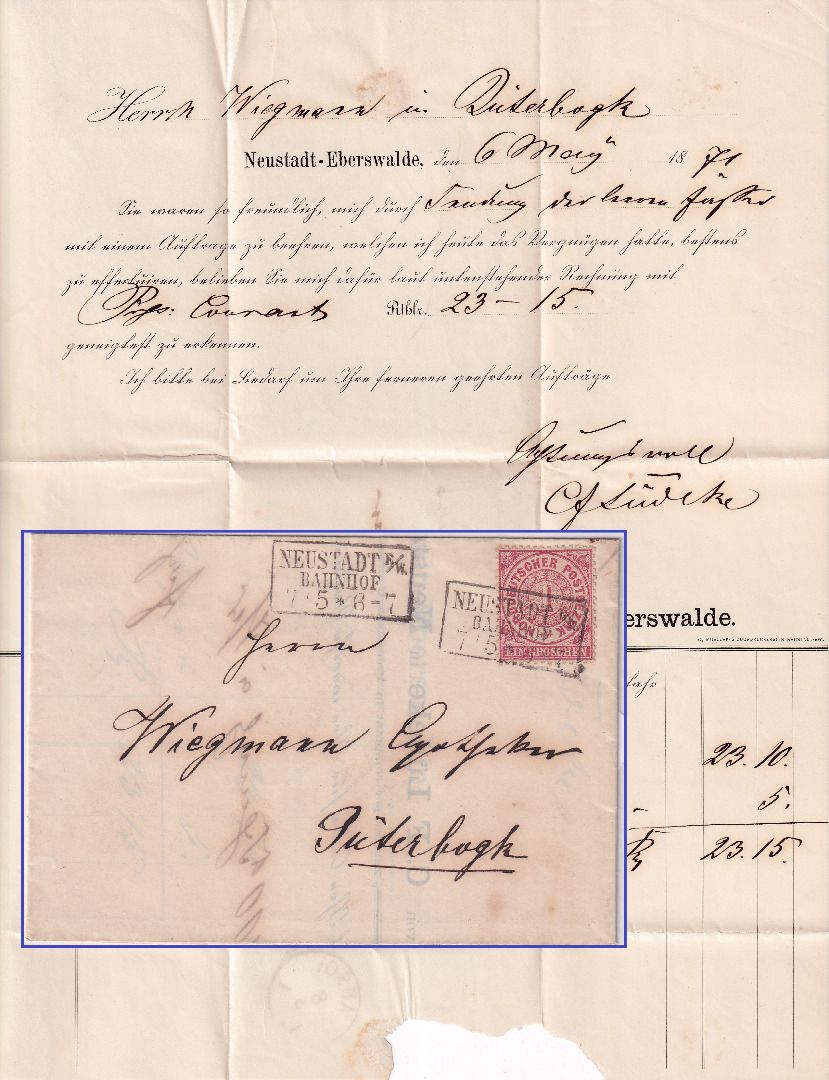 Herrn Wiegmann in Jüterbogk
Neustadt-Eberswalde, den 6 May 1871
Sie waren so freundlich, mich durch Sendung der leeren Fässer
mit einem Auftrage zu beehren, welchen ich heute das Vergnügen hatte, bestens
zu effectuiren, belieben Sie mich dafür laut untenstehender Rechnung mit
Pr. Courant Rthlr. 23 – 15.
geneigtest zu erkennen.
Ich bitte bei Bedarf um Ihre ferneren geehrten Aufträge
Achtungsvoll
CF Lüdcke
erswalde.
23. 10.
5.
23. 15.
NEUSTADT E/W.
BAHNHOF
7 5 * 6-7
NEUSTADT E/W.
BAHNHOF
7 5 *
DEUTSCHER POST
EIN GROSCHEN
Herrn
Wiegmann Apotheker
Jüterbogk